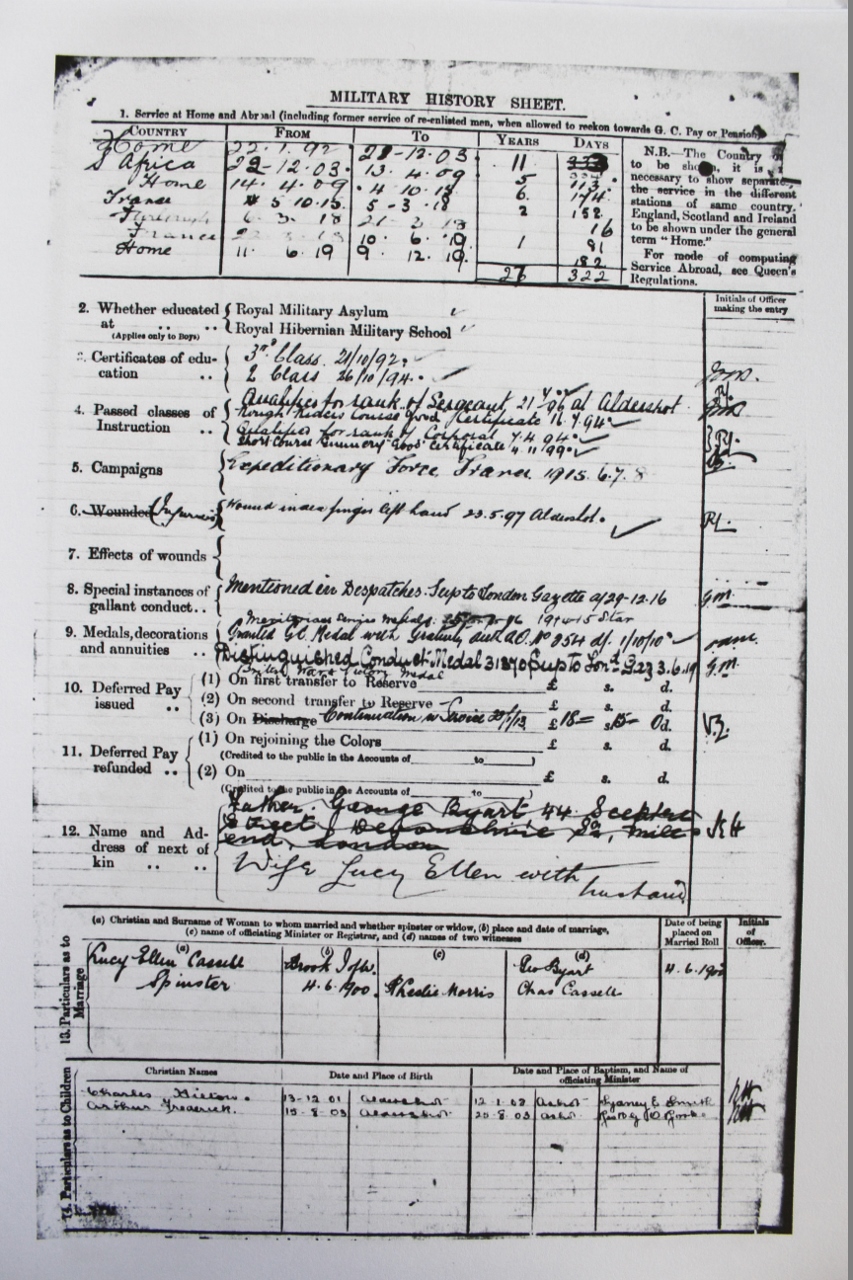 MILITARY HISTORY SHEET.
1. Service at Home and Abroad (including former service of re-enlisted men, when allowed to reckon towards G. C. Pay or Pension)
COUNTRY FROM TO YEARS DAYS
Home 22. 1. 92 21-12-03 11
S Africa 22-12-03. 13. 4. 09 5
Home 14. 4. 09 4. 10. 15 6. 174.
France 5 10.15. 5-3-18 2 152
6. 3. 18 21 3 18 16
France 10. 6. 19. 1 81
Home 11. 6. 19 9. 12. 19. 182
322
N.B.—The Country
to be shown, it is
necessary to show separate
the service in the different
stations of same country.
England, Scotland and Ireland
to be shown under the general
term "Home."
For mode of computing
Service Abroad, see Queen's
Regulations.
Initials of Officer
making the entry
2. Whether educated at .. .. (Applies only to Boys)
Royal Military Asylum
Royal Hibernian Military School
3. Certificates of education ..
3rd Class. 21/10/92.
2 Class 26/10/94.
4. Passed classes of Instruction ..
Qualified for rank of Sergeant 21/ /96 at Aldershot
Rough Riders Course Good Certificate 16.4.94.
Qualified for rank of Corporal 7.4.94.
Short Course Gunnery "Good" Certificate 4.11/99.
5. Campaigns
Expeditionary Force France 1915. 6.7. 8
6. Wounded
Wound index finger left hand 23.5.97 Aldershot.
7. Effects of wounds
8. Special instances of gallant conduct..
Mentioned in Despatches. Sup to London Gazette d/29-12.16 G.M.
9. Medals, decorations and annuities ..
Meritorious Service Medal. 1914-15 Star
Granted GC Medal with Gratuity auth AO. No 254 d/. 1/10/10
Distinguished Conduct Medal 31870 Sup to Lon. Gaz 3.6.19 G.M.
British War & Victory Medal
10. Deferred Pay issued ..
(1) On first transfer to Reserve £ s. d.
(2) On second transfer to Reserve £ s. d.
(3) On Discharge Continuation in Service £18= s.15= 0d.
11. Deferred Pay refunded ..
(1) On rejoining the Colors £ s. d.
(Credited to the public in the Accounts of to )
(2) On £ s. d.
(Credited to the public in the Accounts of to )
12. Name and Address of next of kin .. ..
Father. George Byart 44 Sceptre
Street, Devonshire St, Mile
end, London
Wife Lucy Ellen with
husband
(a) Christian and Surname of Woman to whom married and whether spinster or widow, (b) place and date of marriage,
(c) name of officiating Minister or Registrar, and (d) names of two witnesses
Date of being
placed on
Married Roll
Initials
of
Officer.
13. Particulars as to Marriage
(a) (b) (c) (d)
Lucy Ellen Cassell Geo Byart 4.6.1900
Spinster 4.6.1900. Leslie Morris Chas Cassell
14. Particulars as to Children
Christian Names Date and Place of Birth Date and Place of Baptism, and Name of
officiating Minister
Charles 13-12 01 Aldershot 12-1-02 Sydney E Smith
Arthur Frederick. 15-8-03 Aldershot